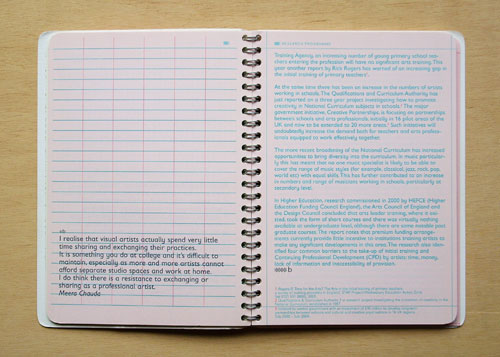 I realise that visual artists actually spend very little
time sharing and exchanging their practices.
It is something you do at college and it's difficult to
maintain, especially as more and more artists cannot
afford separate studio spaces and work at home.
I do think there is a resistance to exchanging or
sharing as a professional artist.
Meera Chauda
Training Agency, an increasing number of young primary school tea-
chers entering the profession will have no significant arts training. This
year another report by Rick Rogers has warned of an increasing gap in
the initial training of primary teachers'.
At the same time there has been an increase in the numbers of artists
working in schools. The Qualifications and Curriculum Authority has
just reported on a three year project investigating how to promote
creativity in National Curriculum subjects in schools.² The major
government initiative, Creative Partnerships, is focusing on partnerships
between schools and arts professionals, initially in 16 areas of the
UK, and now to be extended to 20 more areas.³ Such initiatives will
undoubtedly increase the demand both for teachers and arts profes-
sionals equipped to work effectively together.
The more recent broadening of the National Curriculum has increased
opportunities to bring diversity into the curriculum. In music particular-
ly this has meant that no one music specialist is likely to be able to
cover the range of music styles (for example, classical, jazz, rock, pop,
world etc) with equal skills. This has further contributed to an increase
in numbers and range of musicians working in schools, particularly at
secondary level.
In Higher Education, research commissioned in 2000 by HEFCE (Higher
Education Funding Council England), the Arts Council of England and
the Design Council concluded that arts leader training, where it exi-
sted, took the form of short courses and there was virtually nothing
available at undergraduate level, although there are some notable post
graduate courses. The report notes that present funding arrange-
ments currently provide little incentive to institutions training artists to
make any significant developments in this area. The research also iden-
tified four common barriers to the take-up of initial training and
Continuing Professional Development (CPD) by artists: time, money,
lack of information and inaccessibility of provision.